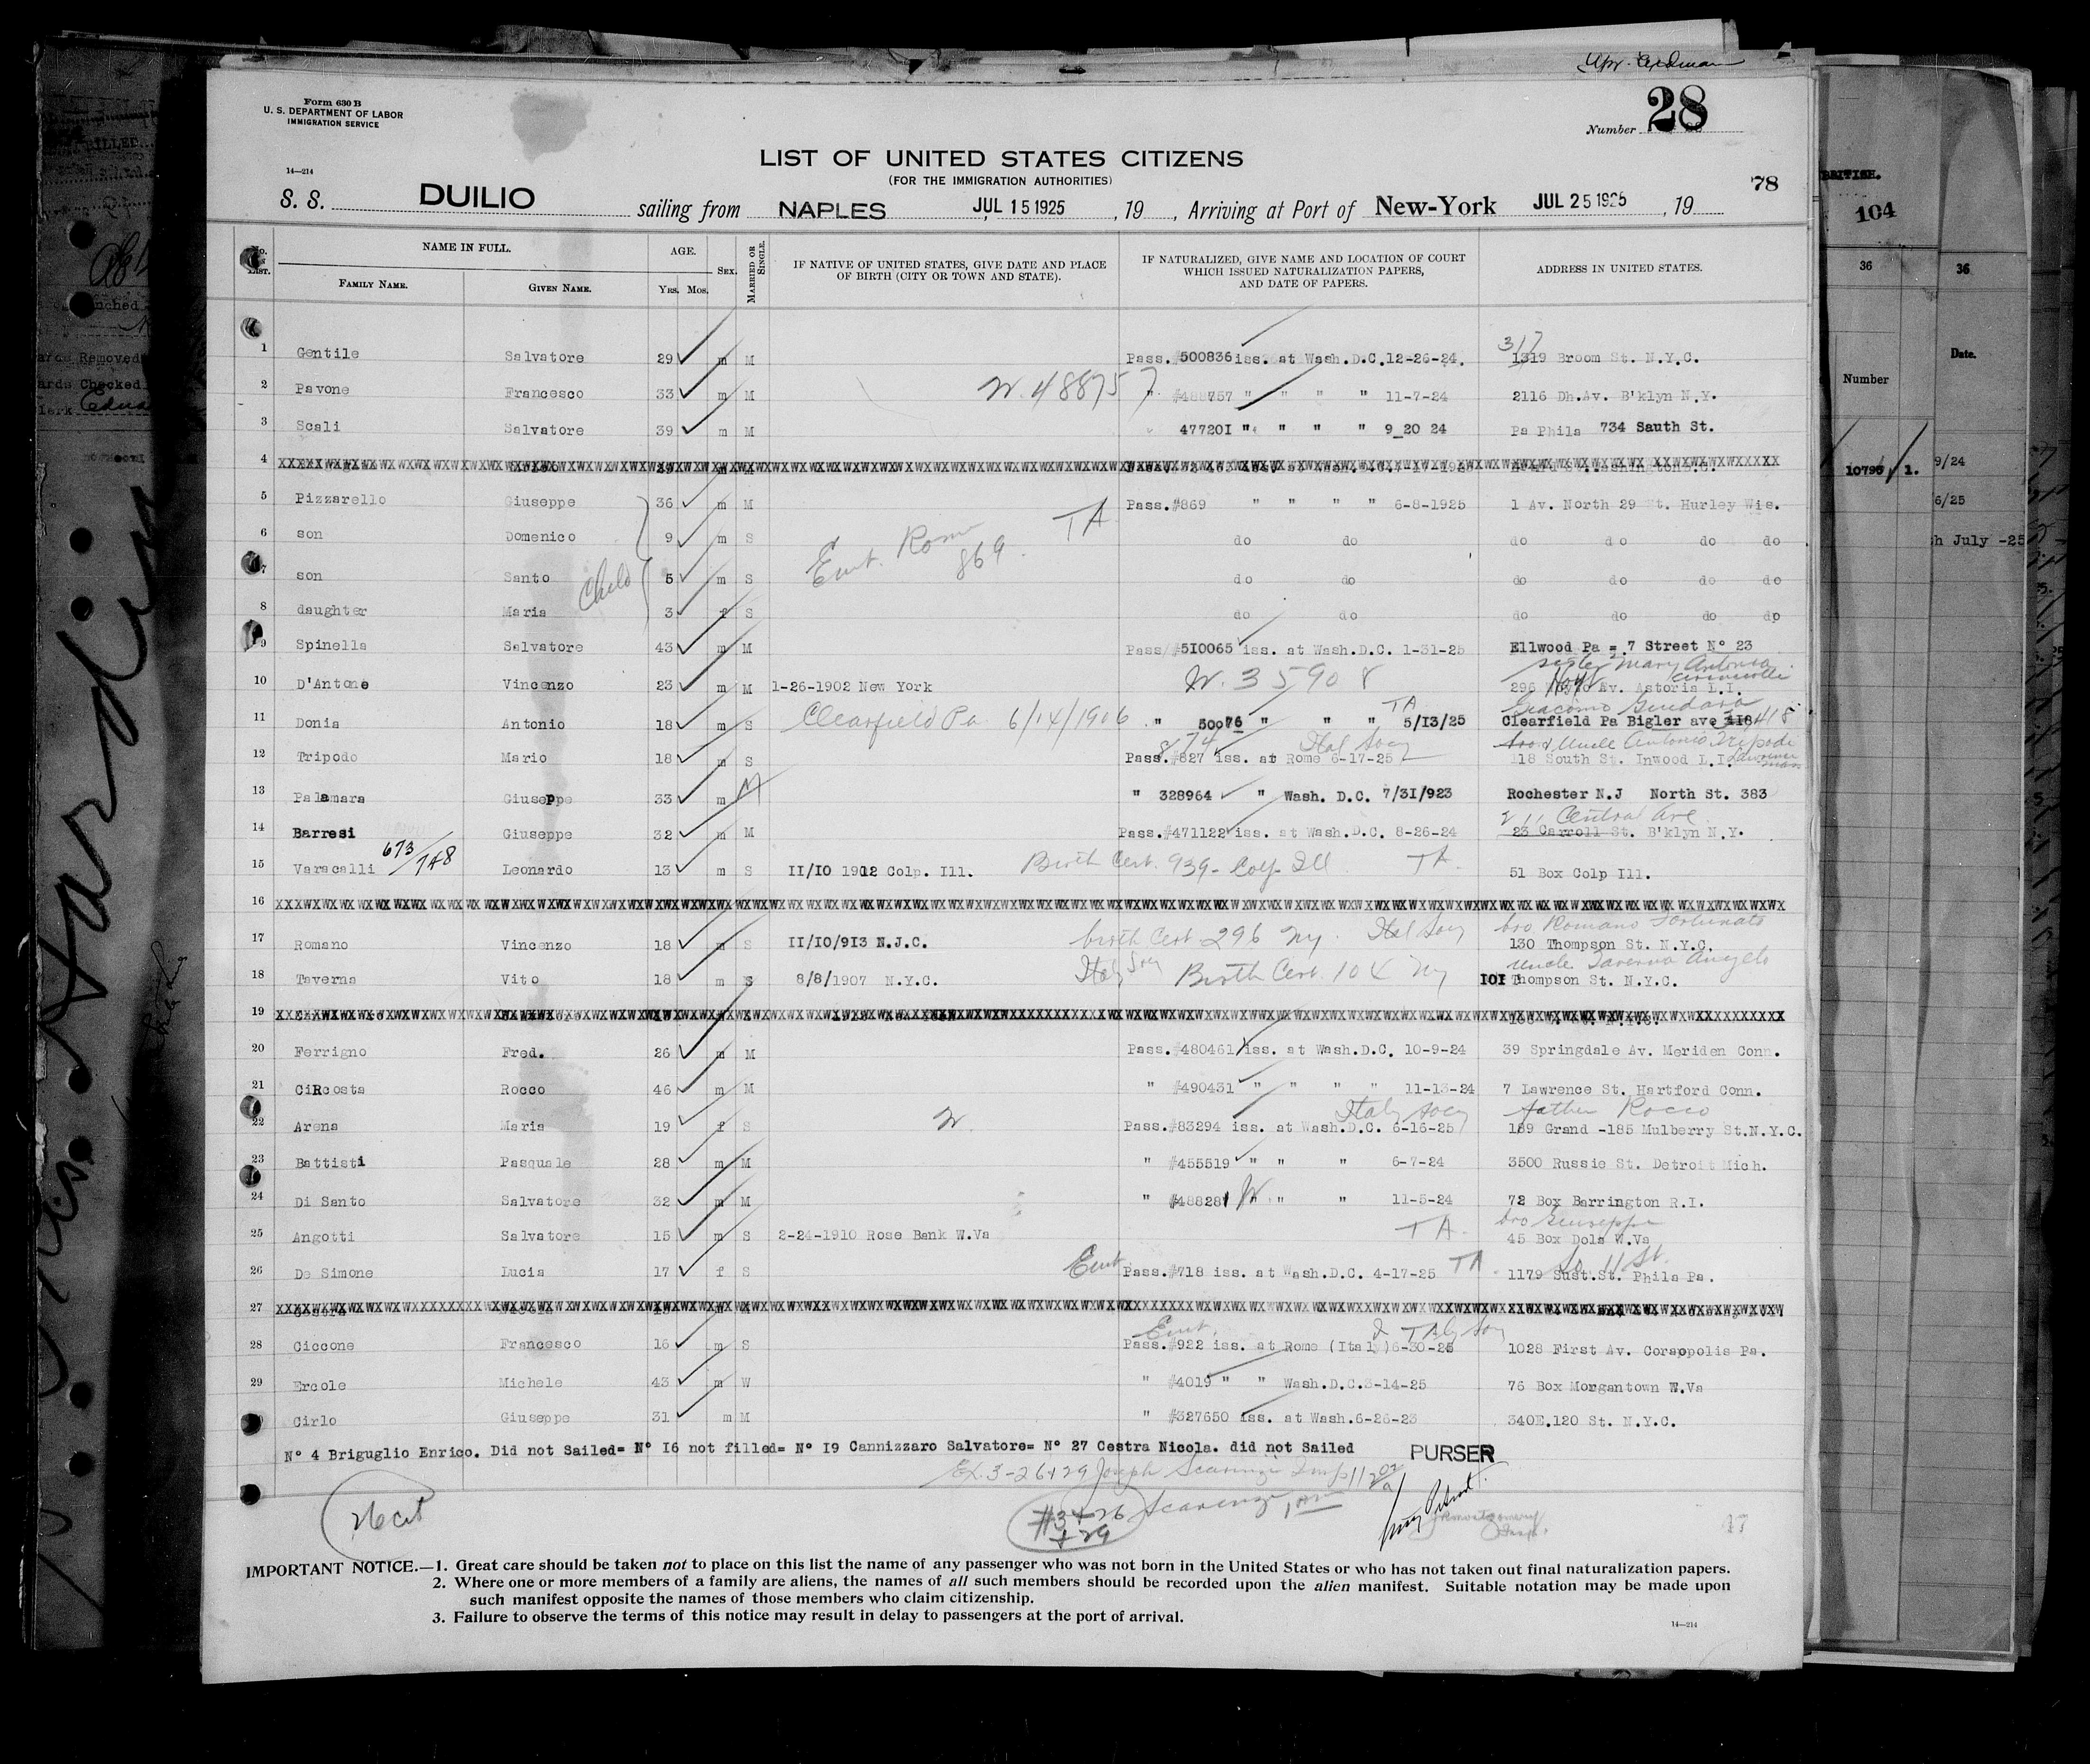 Form 630 B
U. S. DEPARTMENT OF LABOR
IMMIGRATION SERVICE
14—214
Number 28
LIST OF UNITED STATES CITIZENS
(FOR THE IMMIGRATION AUTHORITIES)
78
S. S. DUILIO sailing from NAPLES JUL 15 1925, 19 , Arriving at Port of New-York JUL 25 1925, 19
No. LIST. NAME IN FULL. AGE. SEX. MARRIED OR SINGLE. IF NATIVE OF UNITED STATES, GIVE DATE AND PLACE OF BIRTH (CITY OR TOWN AND STATE). IF NATURALIZED, GIVE NAME AND LOCATION OF COURT WHICH ISSUED NATURALIZATION PAPERS, AND DATE OF PAPERS. ADDRESS IN UNITED STATES.
FAMILY NAME. GIVEN NAME. YRS. MOS.
317
1 Gentile Salvatore 29 m M Pass.#500836 iss. at Wash.D.C.12-26-24. 1319 Broom St. N.Y.C.
2 Pavone Francesco 33 m M W. 488757 " #488757 " " " " 11-7-24 2116 Dh.Av. B'klyn N.Y.
3 Scali Salvatore 39 m M 477201 " " " " 9_20 24 Pa Phila 734 Sauth St.
4
5 Pizzarello Giuseppe 36 m M Pass.#869 " " " " 6-8-1925 1 Av. North 29 St. Hurley Wis.
6 son Domenico 9 m S Rome 869 TA do do do do do do
7 son Santo Child 5 m S do do do do do do
8 daughter Maria 3 f S do do do do do do
9 Spinella Salvatore 43 m M Pass #510065 iss. at Wash.D.C. 1-31-25 Ellwood Pa = 7 Street N° 23
sister Mary Antonia
10 D'Antone Vincenzo 23 m M 1-26-1902 New York W. 35908 296 Hoyt Av. Astoria L.I.
11 Donia Antonio 18 m S Clearfield Pa 6/14/1906 " 50076 " " " TA 5/13/25 Clearfield Pa Bigler ave 418
Uncle Antonio Tripodi
12 Tripodo Mario 18 m S Pass.#827 iss. at Rome 6-17-25 Ital Socy 118 South St. Inwood L.I.
13 Palamara Giuseppe 33 m M " 328964 " Wash. D.C. 7/31/923 Rochester N.J North St. 383
211 Central Ave
14 Barresi Giuseppe 32 m M Pass.#471122 iss. at Wash.D.C. 8-26-24 23 Carroll St. B'klyn N.Y.
15 Varacalli 673/748 Leonardo 13 m S 11/10 1912 Colp. Ill. Birth Cert. 939- Colp Ill TA. 51 Box Colp Ill.
16
bro Romano Fortunato
17 Romano Vincenzo 18 m S 11/10/913 N.J.C. birth Cert 296 Ny. Ital Socy 130 Thompson St. N.Y.C.
Uncle Taverna Angelo
18 Taverna Vito 18 m S 8/8/1907 N.Y.C. Italy Socy Birth Cert. 104 Ny 101 Thompson St. N.Y.C.
19
20 Ferrigno Fred. 26 m M Pass.#480461 iss. at Wash.D.C. 10-9-24 39 Springdale Av. Meriden Conn.
21 CiRcosta Rocco 46 m M " #490431 " " " " 11-13-24 7 Lawrence St. Hartford Conn.
Italy Socy father Rocco
22 Arena Maria 19 f S W. Pass.#83294 iss. at Wash.D.C. 6-16-25 189 Grand -185 Mulberry St.N.Y.C.
23 Battisti Pasquale 28 m M " #455519 " " " 6-7-24 3500 Russie St. Detroit Mich.
24 Di Santo Salvatore 32 m M " #488281 W " " " 11-5-24 72 Box Barrington R.I.
bro Giuseppe
25 Angotti Salvatore 15 m S 2-24-1910 Rose Bank W.Va TA. 45 Box Dola W.Va
So. 11 St.
26 De Simone Lucia 17 f S Pass.#718 iss. at Wash.D.C. 4-17-25 TA. 1179 Sust.St. Phila Pa.
27
28 Ciccone Francesco 16 m S Pass.#922 iss. at Rome (Italy)6-30-25 1028 First Av. Coraopolis Pa.
29 Ercole Michele 43 m W " #4019 " " Wash.D.C.3-14-25 76 Box Morgantown W.Va
Cirlo Giuseppe 31 m M " #327650 iss. at Wash.6-26-23 340E.120 St. N.Y.C.
N° 4 Briguglio Enrico. Did not Sailed= N° 16 not filled= N° 19 Cannizzaro Salvatore= N° 27 Cestra Nicola. did not Sailed PURSER
26 cit
#3+26
+29
47
IMPORTANT NOTICE.—1. Great care should be taken not to place on this list the name of any passenger who was not born in the United States or who has not taken out final naturalization papers.
2. Where one or more members of a family are aliens, the names of all such members should be recorded upon the alien manifest. Suitable notation may be made upon
such manifest opposite the names of those members who claim citizenship.
3. Failure to observe the terms of this notice may result in delay to passengers at the port of arrival.
14—214
BRITISH.
104
36 36
Date.
Number
10795 1. 9/24
6/25
h July -25